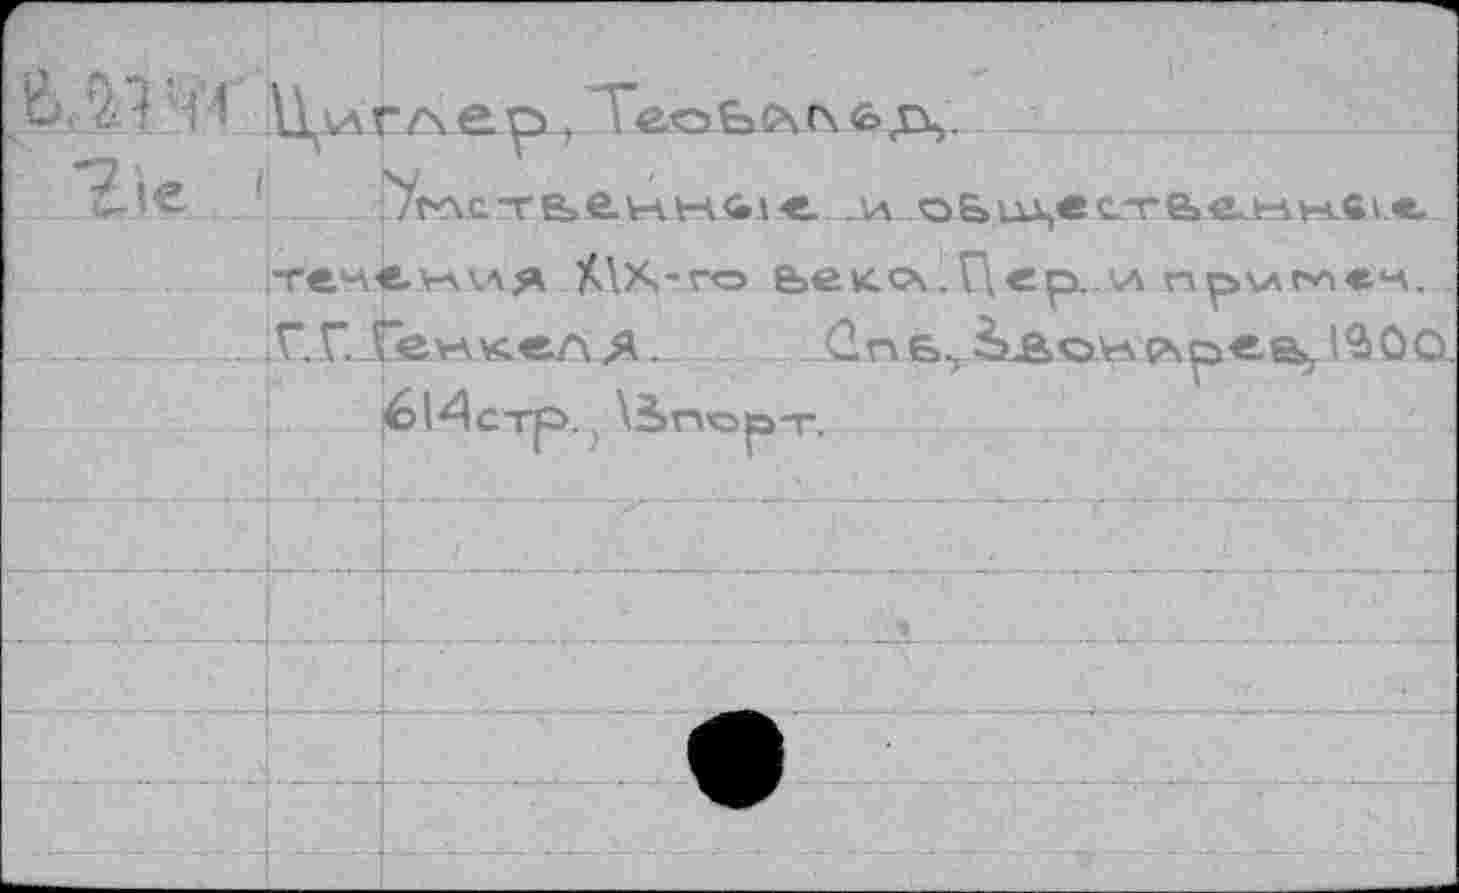 В.2741 Циглер, Теобальд.
Zie Умственные и общественные
течения XIX-го века. Пер. и примеч.
Г.Г. Генкеля. Спб., Звонарев, 1900.
614стр.,